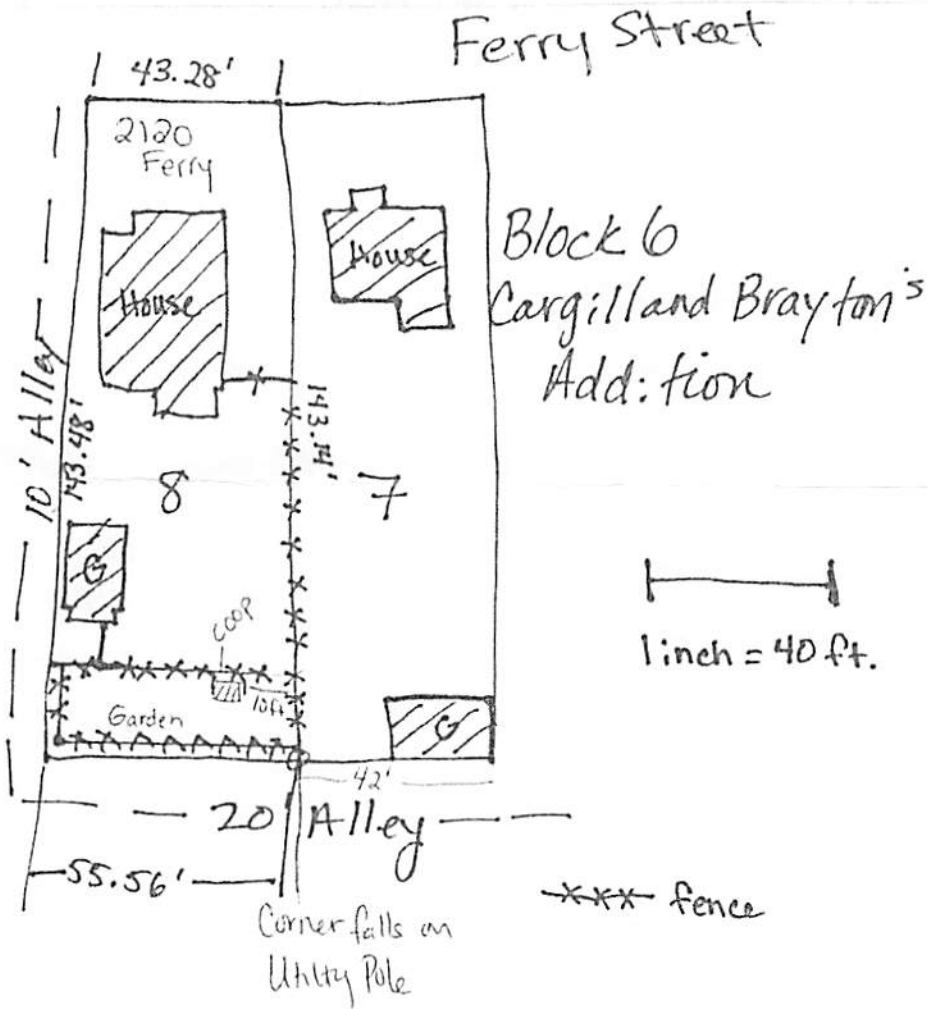 Ferry Street
43.28'
2120
Ferry
House
House
Block 6
Cargill and Brayton's
Addition
10' Alley
143.48'
143.14'
8
7
G
COOP
10ft
Garden
G
1 inch = 40 ft.
42'
20' Alley
55.56'
fence
Corner falls on
Utility Pole